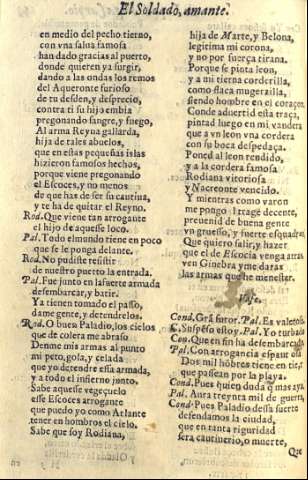 El Soldado, amante.
en medio del pecho tierno,
con vna salua famosa
han dado gracias al puerto,
donde quieren ya surgir,
dando a las ondas los remos
del Aqueronte furioso
de tu desden, y desprecio,
contra ti su hijo embia
pregonando sangre, y fuego,
Al arma Reyna gallarda,
hija de tales abuelos,
que en estas pequeñas islas
hizieron famosos hechos,
porque viene pregonando
el Escoces, y no menos
de que has de ser su cautiua,
y te ha de quitar el Reyno.
Rod. Que viene tan arrogante
el hijo de aquesse loco.
Pal. Todo el mundo tiene en poco
que se le ponga delante.
Rod. No pudiste resistir
de nuestro puerto la entrada.
Pal. Fue junto en la fuerte armada
desembarcar, y batir.
Ya tienen tomado el passo,
dame gente, y detendrelos.
Rod. O buen Paladio, los cielos
que de colera me abraso
Denme mis armas al punto
mi peto, gola, y celada
que yo detendre essa armada,
y a todo el infierno junto.
Sabe aquesse vegeçuelo
esse Escoces arrogante
que puedo yo como Atlante
tener en hombros el cielo.
Sabe que soy Rodiana,
hija de Marte, y Belona,
legitima mi corona,
y no por fuerça tirana.
Porque se pinta leon,
y a mi tierna corderilla,
como flaca mugerzilla,
siendo hombre en el coraçon
Conde aduertid esta traça,
pintad luego en mi vandera
que a vn leon vna cordera
con su boca despedaça.
Poned al leon rendido,
y a la cordera famosa
Rodiana vitoriosa
y Nacreonte vencido.
Y mientras como varon
me pongo trage decente,
preuenid de buena gente
vn gruesso, y fuerte esquadron
Que quiero salir, y hazer
que el de Escocia venga a
ver en Ginebra y me daras
las armas que he menester.
Vase.
Cond. Grã furor. Pal. Es valerosa
C. Suspẽso estoy. Pal. Yo turbado
Con. Que en fin ha desembarcado
Pal. Con arrogancia espantosa
Dos mil hõbres tiene en tierra
que passean por la playa.
Cond. Pues quien duda q mas aya
Pal. Aura treynta mil de guerra
Cond. Pues Paladio dessa suerte
defendamos la ciudad,
que en tanta riguridad
sera cautiuerio, o muerte,
Que